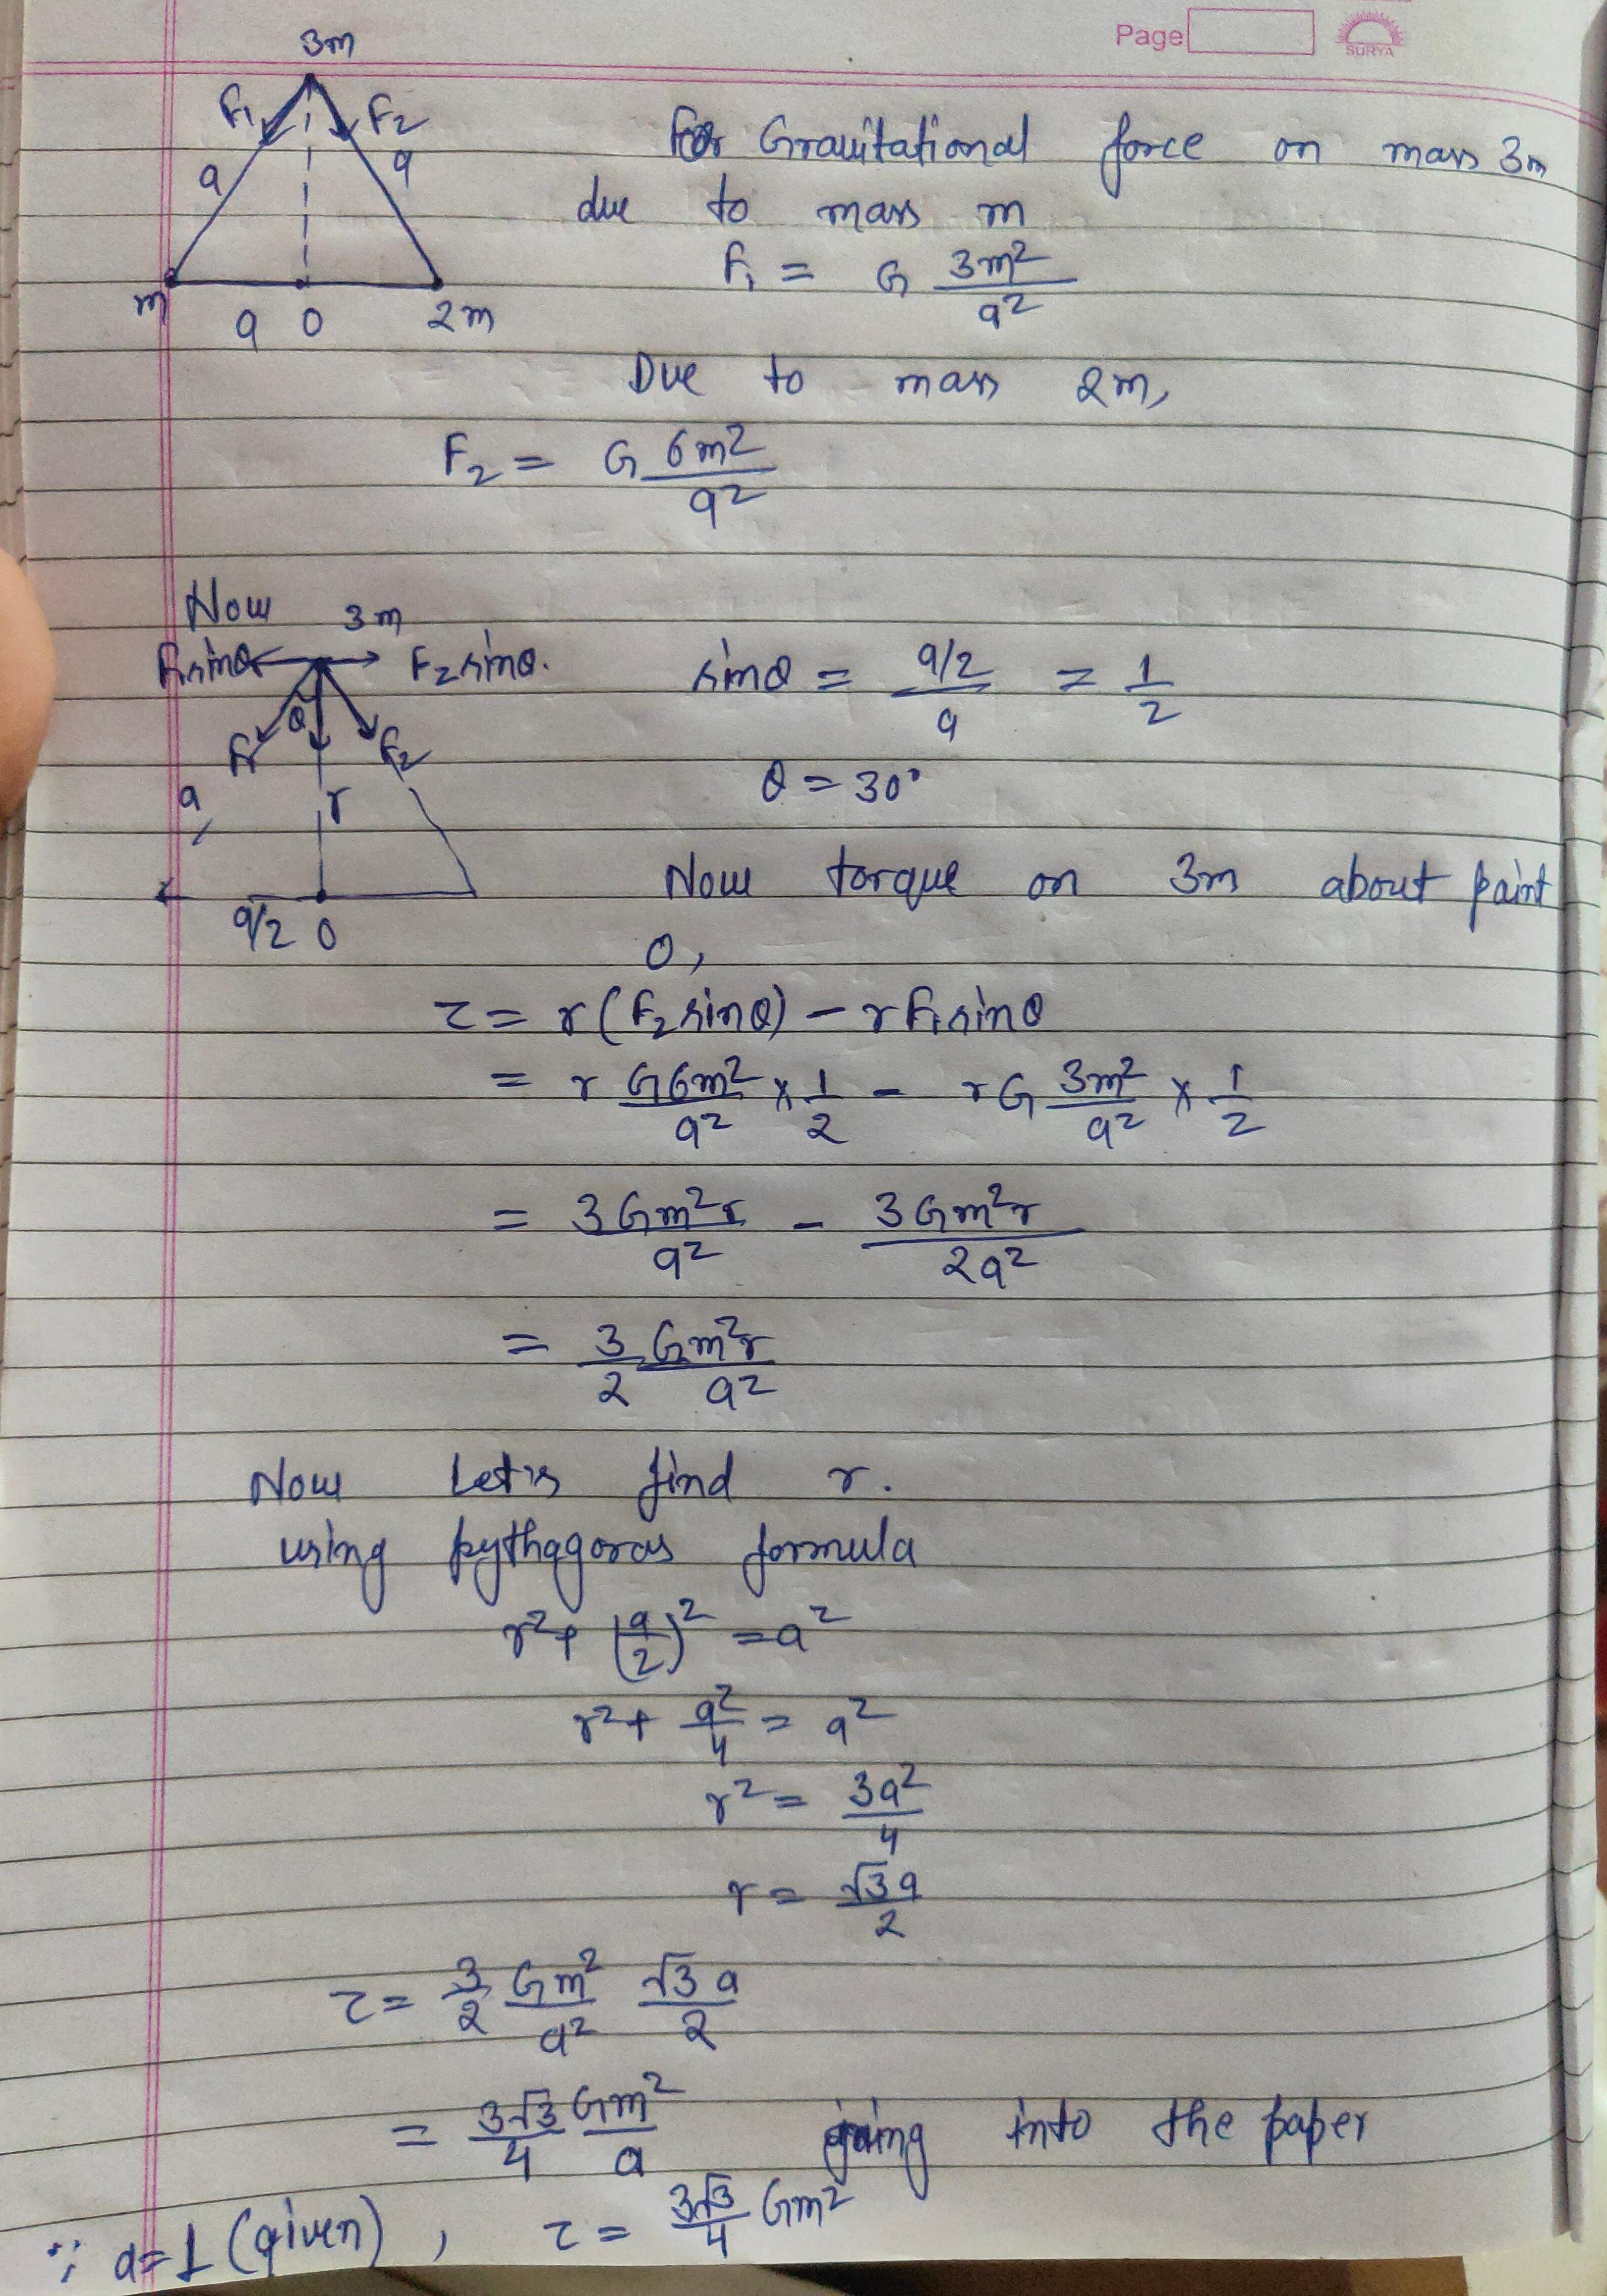 Page
SURYA
3m
F₁ F₂
a a
m a O 2m
For Gravitational force on mass 3m
due to mass m
F₁ = G 3m²/a²
Due to mass 2m,
F₂ = G 6m²/a²
Now 3m
F₁sinθ F₂sinθ.
θ
F₁ F₂
a r
a/2 O
sinθ = (a/2)/a = 1/2
θ = 30°
Now torque on 3m about point
O,
τ = r(F₂sinθ) - rF₁sinθ
= r G6m²/a² × 1/2 - rG 3m²/a² × 1/2
= 3Gm²r/a² - 3Gm²r/2a²
= 3/2 Gm²r/a²
Now Let's find r.
using pythagoras formula
r² + (a/2)² = a²
r² + a²/4 = a²
r² = 3a²/4
r = √3a/2
τ = 3/2 Gm²/a² √3a/2
= 3√3/4 Gm²/a going into the paper
∵ a=1 (given), τ = 3√3/4 Gm²